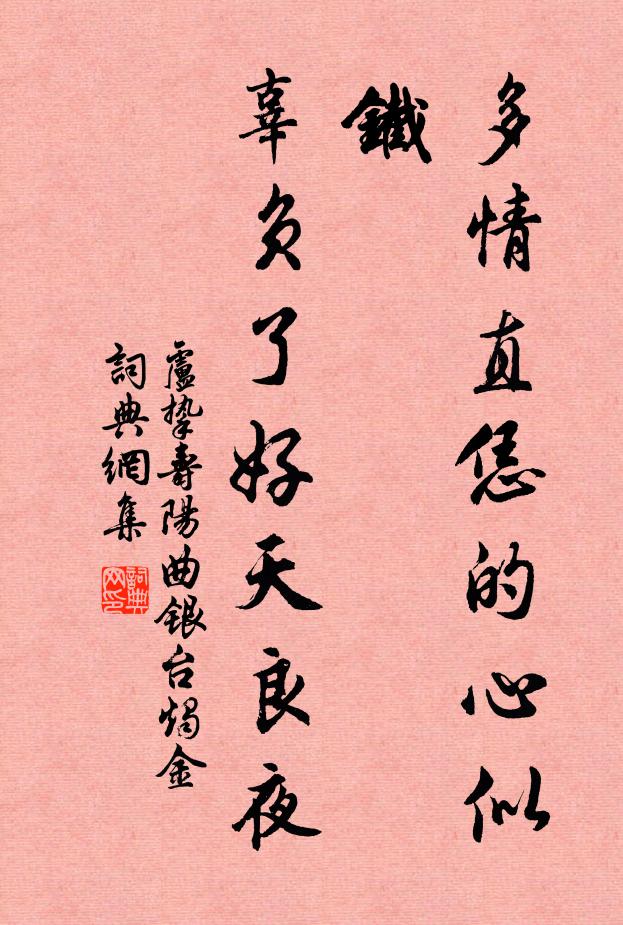 多情直恁的心似
鐵
辜負了好天良夜
盧摯壽陽曲銀台燭金
詞典網集
詞典
网印